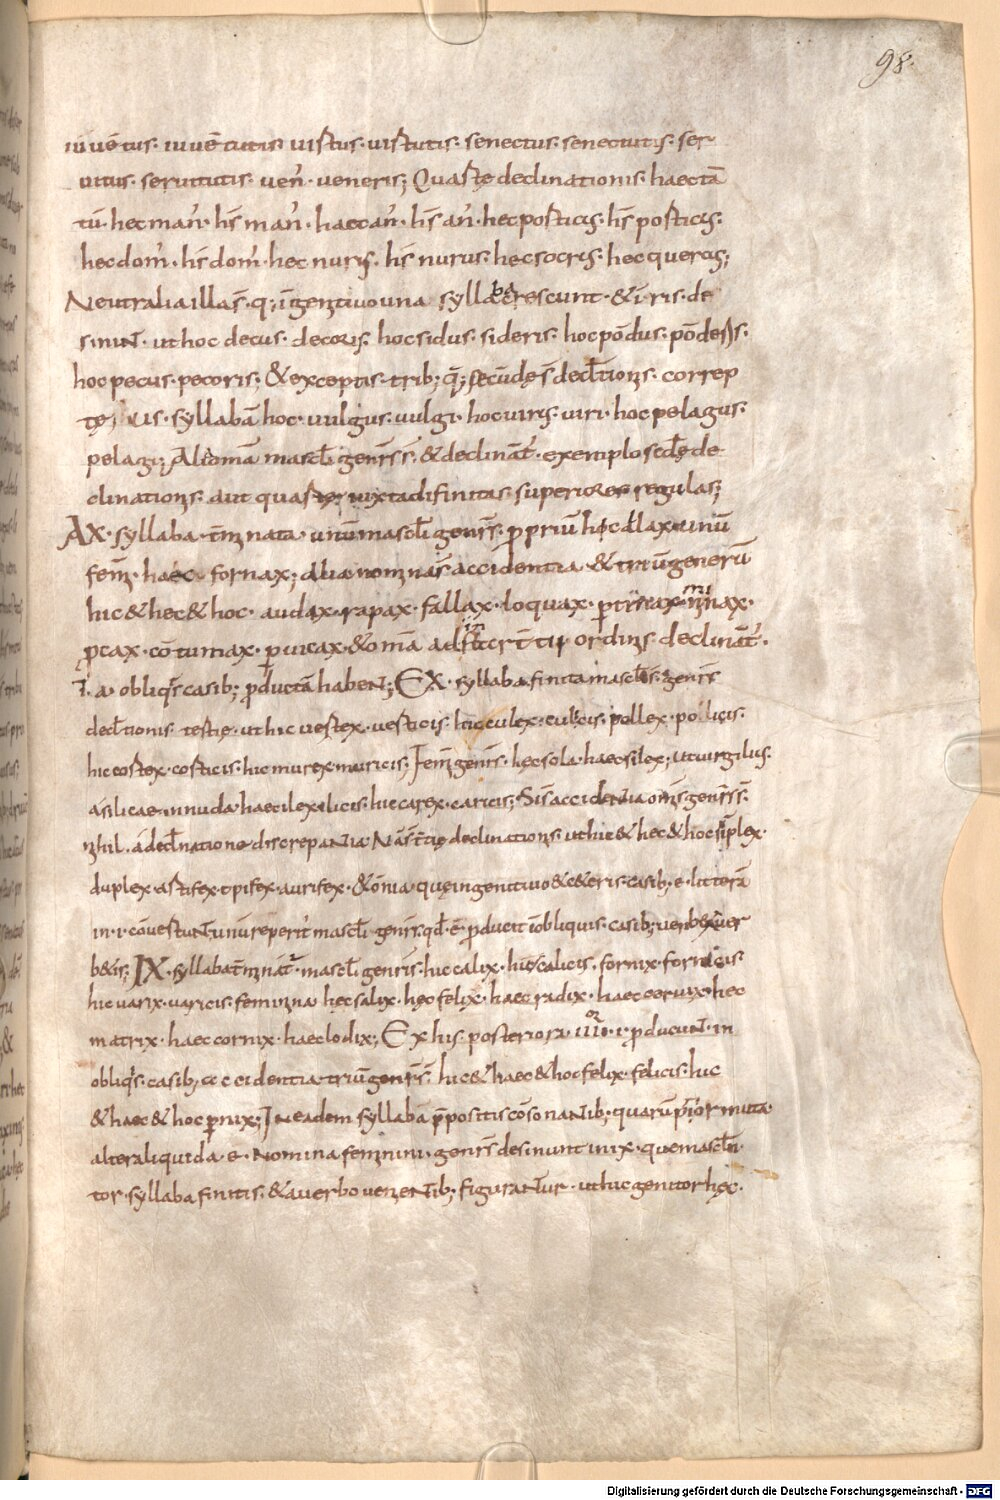 98.
iuuētus· iuuētutis uirtus· uirtutis· senectus· senectutis· ser
uitus· seruitutis· ueñ· ueneris; Quartę declinationis· haec tā
tū· hec mañ· hīs mañ· haec añ· hīs añ· hec porticus· hīs porticus·
hec dom̄· hīs dom̄· hec nurus· hīs nurus· hec socrus· hec quercus;
Neutralia illa s̄· q; ī genitiuo una syllaba crescunt· & ī· ris· de
sinuNT· ut hoc decus· decoris· hoc sidus· sideris· hoc pōdus· pōderis·
hoc pecus· pecoris· & exceptis· trib; q̄; secūdę s̄ declītionis· correp
tę; us· syllabā hoc· uulgus· uulgi· hoc uirus· uiri· hoc pelagus·
pelagi; Alia omā mascl̄i generis s̄· & declinañt· exemplo scd̄ę de
clinationis· aut quartę iuxta difinitas superiores regulas;
AX· syllaba· t̄minata· unū mascl̄i generis· propriū hic dlax unū
femī· haec· fornax; alia nominas̄ accidentia· & triū generū
hic & hec & hoc· audax· rapax· fallax· loquax· p̱tinax· minax·
procax· cōtumax· p̱uicax· & omā ad ordinis declinañt·
ī· a· obliq̄s casib; productā habeNt; EX· syllaba finita mascl̄i s̄· generis
declītionis tertię· ut hic uertex· uerticis· hic culex· culicis· pollex· pollicis·
hic cortex· corticis· hic murex muricis; Femī generis· hęc sola· haec silex; ut uirgilius·
a silicae in nuda· haec ilex ilicis· hic carex· caricis; Sī s̄ accideNtia om̄s generis s̄·
nihil· a declīnatione discrepaNtia declinationis· ut hic & hec & hoc simplex·
duplex· artifex· opifex· aurifex· & omīa· quę in genitiuo & ceteris· casib; e· litterā
in· i· cōuertuNt unū reperit̄ mascl̄i generis qd̄· ē· producit ī obliquis· casib; ueruex uer
uecis; IX· syllaba t̄minat̄· mascl̄i generis· hic calix· hius calicis· fornix· fornicis
hic uarix· uaricis· feminina hęc salix· hęc felix· haec radix· haec ceruix· hec
matrix· haec cornix· haec lodix; Ex his posteriora· iiiior· i· producuNt· in
obliq̄s· casib; accidentia· triū generis s̄· hic & haec & hoc felix· felicis· hic
& haec & hoc p̱nix; IN eadem syllaba p̄positis cōsonaNtib; quarū prior muta·
altera liquida· e· Nomina feminini· generis desinunt in ix· que mascl̄in
tor· syllaba finitis· & a uerbo ueNieNtib; figuraNtur· ut hic genitor hęc·
Digitalisierung gefördert durch die Deutsche Forschungsgemeinschaft - DFG